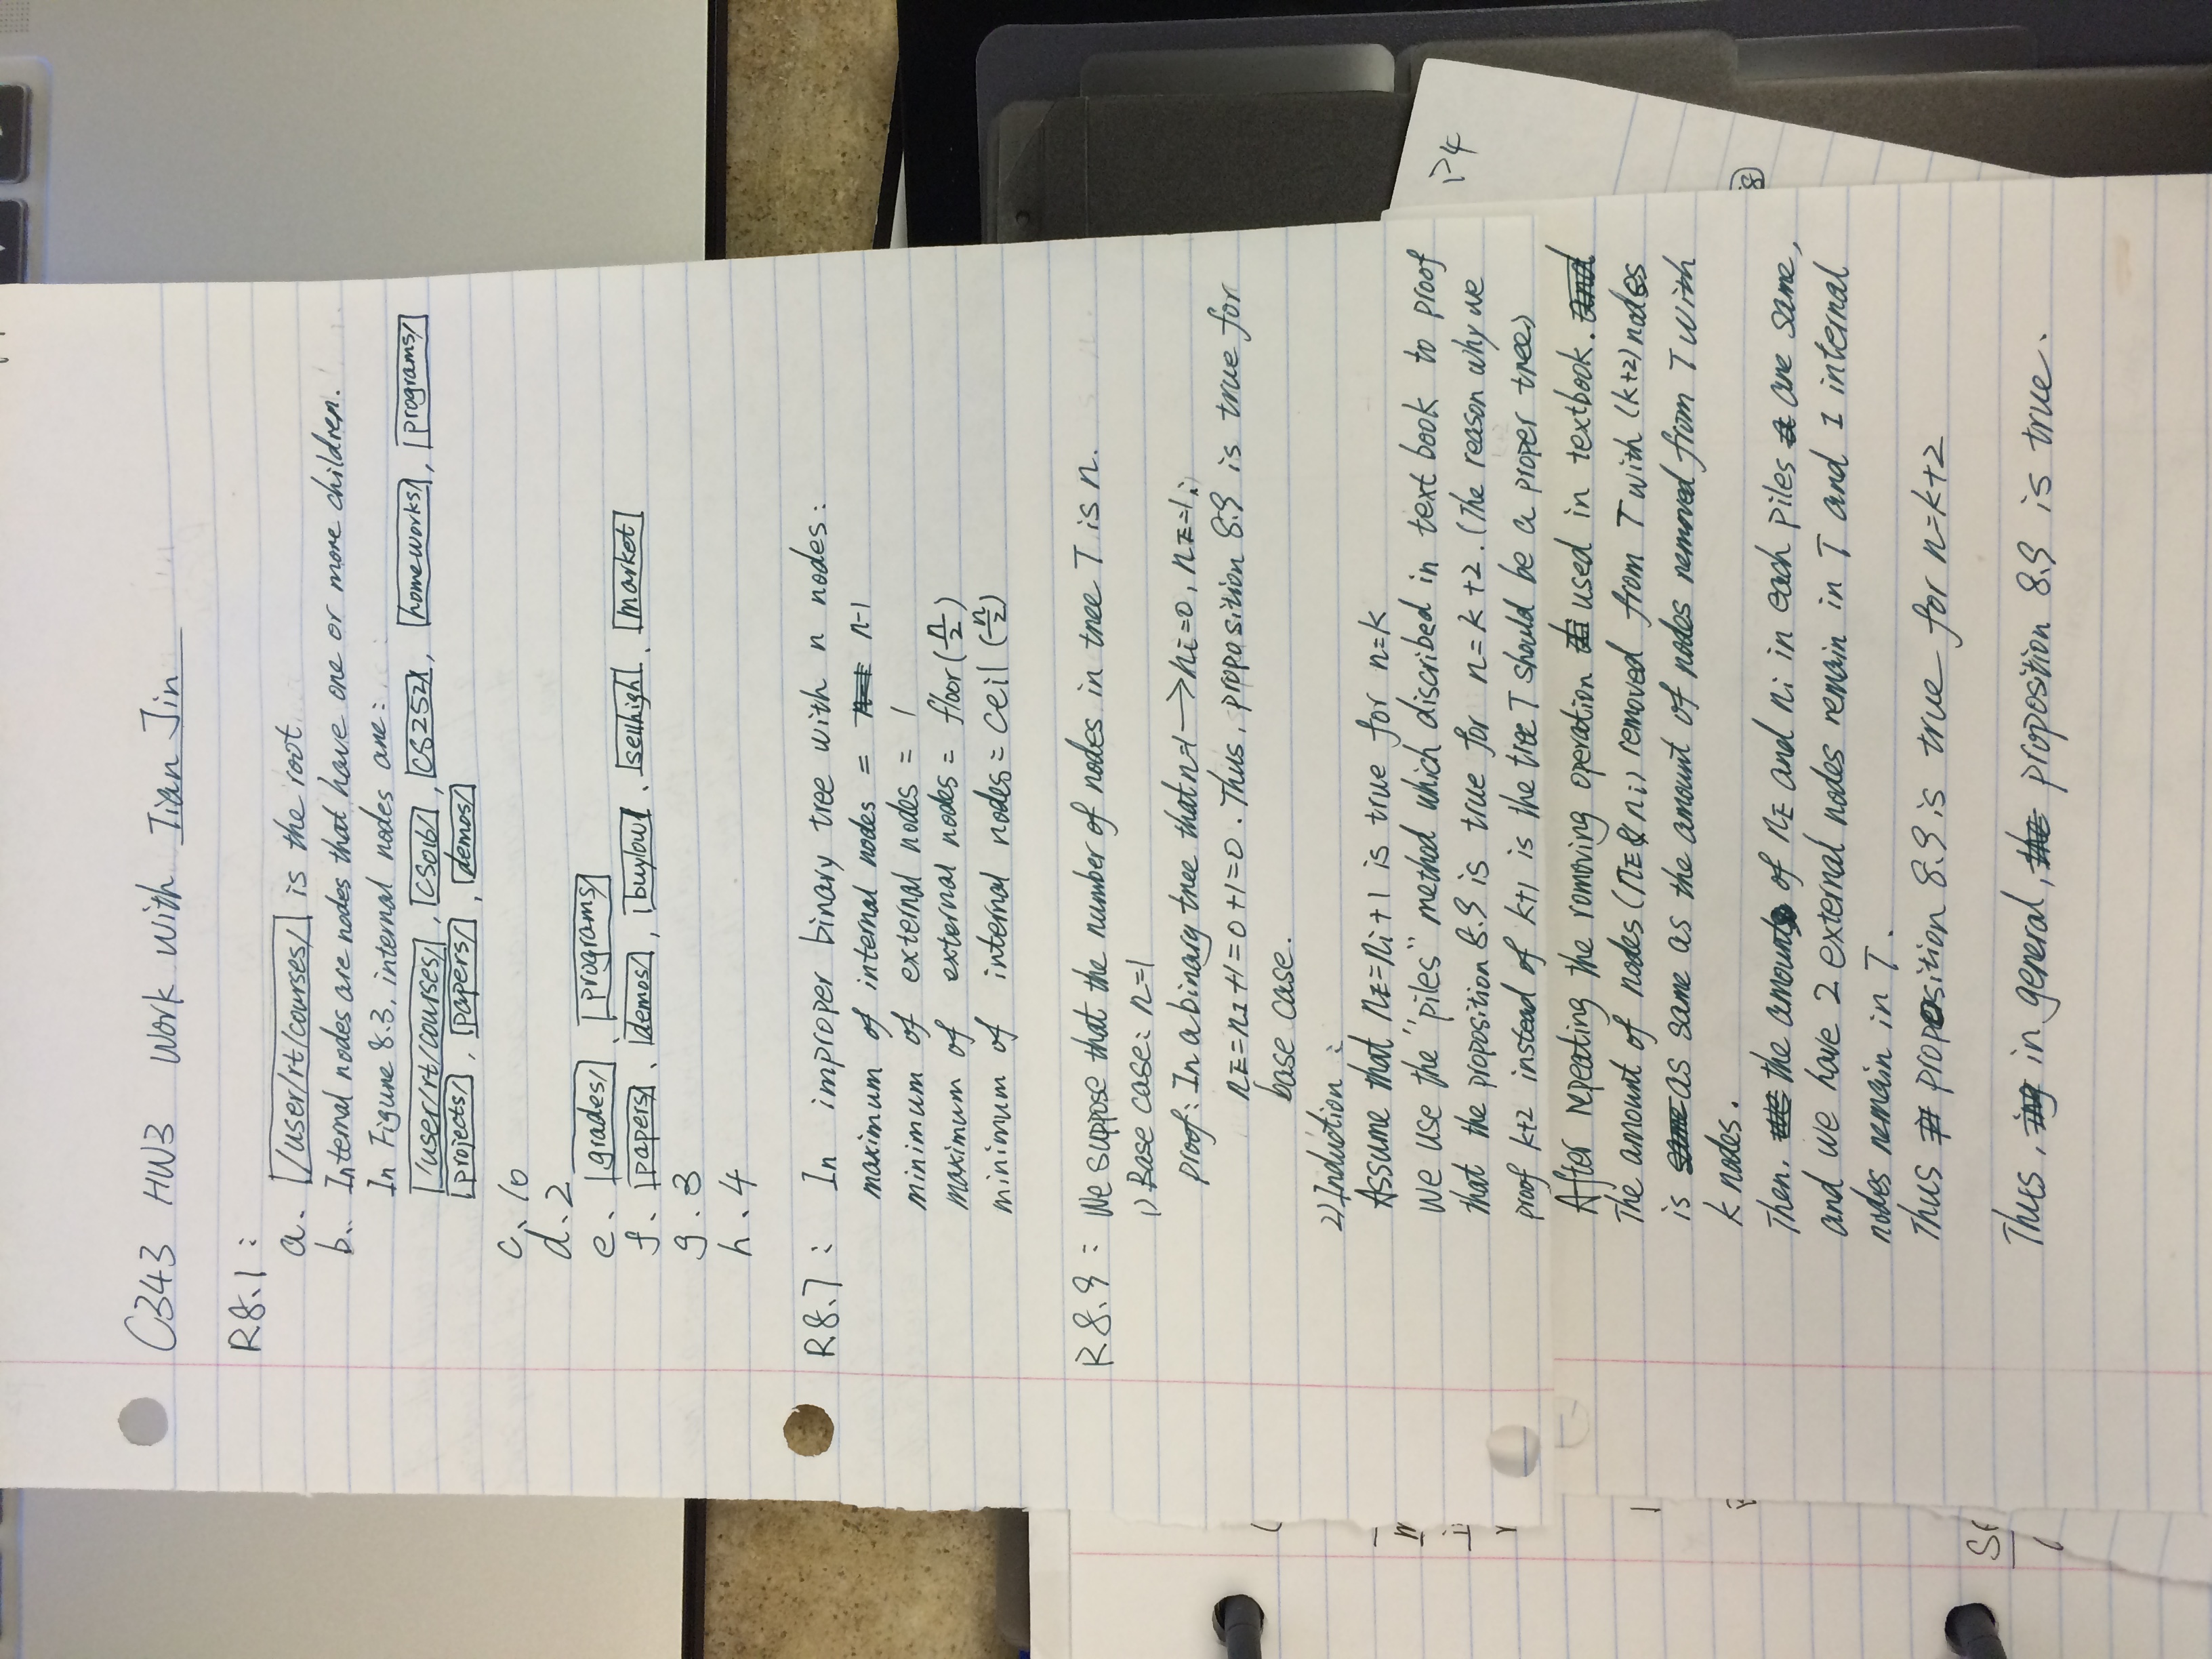 C343 HW3 Work with Tian Jin
R8.1:
a. /user/rt/courses/ is the root
b. Internal nodes are nodes that have one or more children.
In Figure 8.3, internal nodes are:
/user/rt/courses/, CS016/, CS252/, homeworks/, programs/
projects/, papers/, demos/
c. 10
d. 2
e. grades/, programs/
f. papers/, demos/, buylow, sellhigh, market
g. 3
h. 4
R8.7: In improper binary tree with n nodes:
maximum of internal nodes = n-1
minimum of external nodes = 1
maximum of external nodes = floor(n/2)
minimum of internal nodes = ceil(n/2)
R8.9: We suppose that the number of nodes in tree T is n.
1) Base case: n=1
proof: In a binary tree that n=1 → ni=0, nE=1;
nE=nI+1=0+1=0. Thus, proposition 8.9 is true for
base case.
2) Induction:
Assume that nE=ni+1 is true for n=k
we use the "piles" method which discribed in text book to proof
that the proposition 8.9 is true for n=k+2. (The reason why we
proof k+2 instead of k+1 is the tree T should be a proper tree)
After repeating the romoving operation used in textbook.
The amount of nodes (nE & ni) removed from T with (k+2) nodes
is as same as the amount of nodes removed from T with
k nodes.
Then, the amount of nE and ni in each piles are same,
and we have 2 external nodes remain in T and 1 internal
nodes remain in T.
Thus proposition 8.9 is true for n=k+2
Thus, in general, proposition 8.9 is true.
P4
8